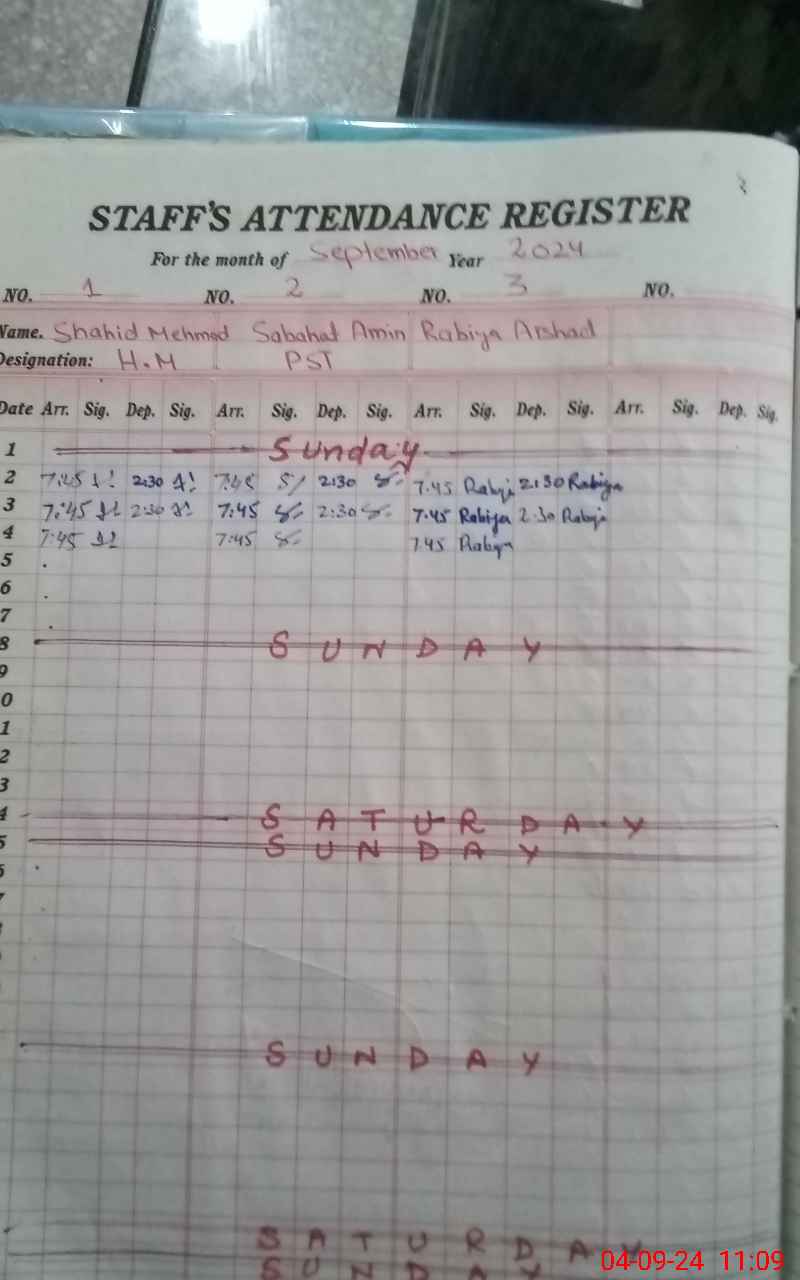 STAFF'S ATTENDANCE REGISTER
For the month of September Year 2024
NO. 1 NO. 2 NO. 3 NO.
Name. Shahid Mehmod Sabahat Amin Rabiya Arshad
Designation: H.M PST
Date Arr. Sig. Dep. Sig. Arr. Sig. Dep. Sig. Arr. Sig. Dep. Sig. Arr. Sig. Dep. Sig.
1 Sunday
2 7:45 2:30 7:45 2:30 7:45 Rabiya 2:30 Rabiya
3 7:45 2:30 7:45 2:30 7:45 Rabiya 2:30 Rabiya
4 7:45 7:45 7:45 Rabiya
5
6
7
8 SUNDAY
9
0
1
2
3
4 SATURDAY
5 SUNDAY
SUNDAY
SATURDAY
SUNDAY
04-09-24 11:09